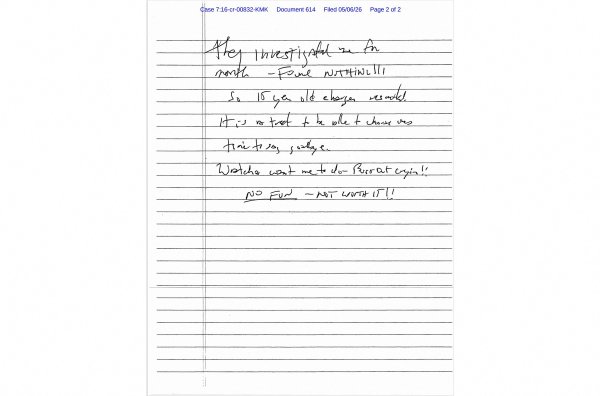 Case 7:16-cr-00832-KMK Document 614 Filed 05/06/26 Page 2 of 2
They investigated me for
month — Found NOTHING!!!
So 15 year old charges resulted.
It is a treat to be able to choose ones
time to say goodbye.
Watcha want me to do — Burst out cryin!!
NO FUN — NOT WORTH IT!!